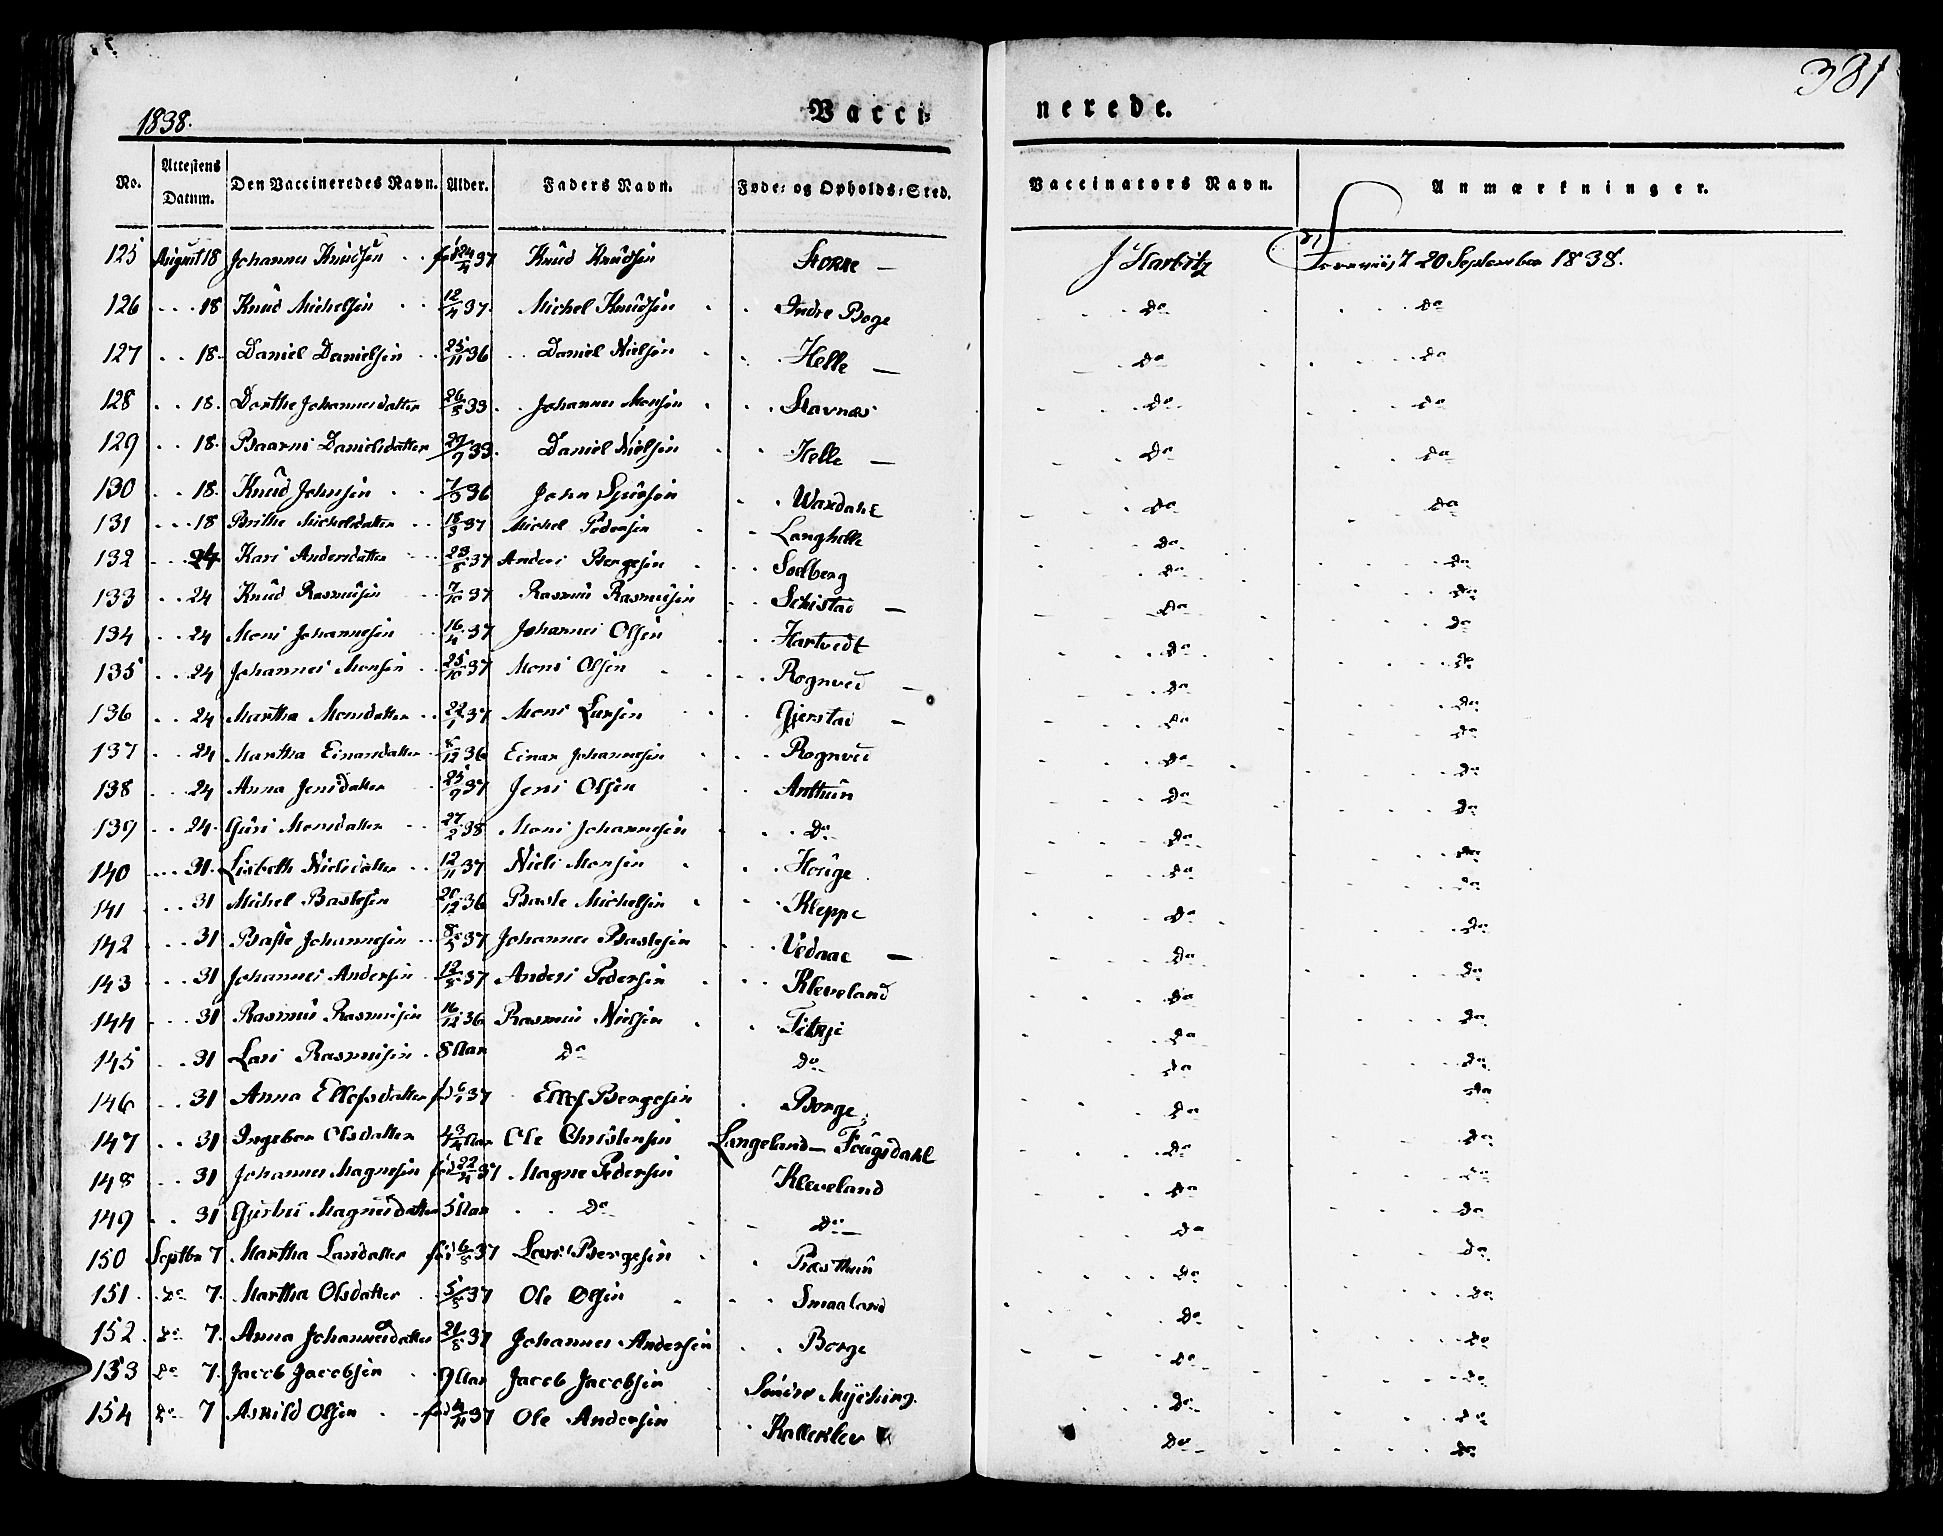 381
1838.
Vaccinerede.
No. Attestens Datum. Den Vaccineredes Navn. Alder. Faders Navn. Føde- og Opholds-Sted. Vaccinators Navn. Anmærkninger.
125 August 18 Johannes Knudsen 37 Knud Knudsen Storre J Harbitz 20 September 1838.
126 18 Knud Michelsen 12/4 37 Michel Knudsen Indre Boge do do
127 18 Daniel Danielsen 25/11 36 Daniel Nielsen Helle do do
128 18 Dorthe Johannesdatter 26/5 33 Johannes Monsen Stavnæs do do
129 18 Baarni Danielsdatter 27/9 33 Daniel Nielsen Helle do do
130 18 Knud Johnsen 36 John Waxdahl do do
131 18 Brithe Michelsdatter 18/3 37 Michel Pedersen Langhelle do
132 24 Kari Andersdatter 23/8 37 Anders Bergesen Solberg do do
133 24 Knud Rasmusen 7/10 37 Rasmus Rasmusen Schistad do do
134 24 Mons Johannesen 16/4 37 Johannes Olsen Hartvedt do do
135 24 Johannes Monsen 25/10 37 Mons Olsen Rognved do do
136 24 Martha Monsdatter 22/1 37 Mons Larsen Gjerstad do do
137 24 Martha Einarsdatter 36 Einar Johannesen Rognved do do
138 24 Anna Jensdatter 25/9 37 Jens Olsen Anthun do do
139 24 Guri Monsdatter 27/2 38 Mons Johannesen do do do
140 31 Lisbeth Nielsdatter 12/11 37 Niels Monsen Houge do do
141 31 Michel Bastesen 36 Baste Michelsen Kleppe do do
142 31 Baste Johannesen 37 Johannes Bastesen Vedaae do do
143 31 Johannes Andersen 12/5 37 Anders Pedersen Kleveland do do
144 31 Rasmus Rasmusen 16/12 36 Rasmus Nielsen do do
145 31 Lars Rasmusen 8 Aar do do do do
146 31 Anna Ellefsdatter 37 Ellef Bergesen Borge do do
147 31 Ingebor Olsdatter 4 3/4 Aar Ole Christensen Langeland - Fougsdahl do do
148 31 Johannes Magnesen 22/4 37 Magne Pedersen Kleveland do do
149 31 Magnesdatter 5 Aar do do do do
150 Septbr 7 Martha Larsdatter 6/5 37 Lars Bergesen Præsthun do do
151 do 7 Martha Olsdatter 5/5 37 Ole Olsen Smaaland do do
152 do 7 Anna Johannesdatter 21/8 37 Johannes Andersen Borge do do
153 do 7 Jacob Jacobsen 9 Aar Jacob Jacobsen Søndre Myching do do
154 do 7 Askild Olsen 37 Ole Andersen Kalleklev do do